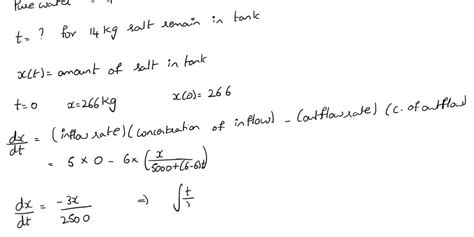 Pure water = 
t = ? for 14 kg salt remain in tank
x(t) = amount of salt in tank
t=0 x=266 kg x(0) = 266
dx/dt = (inflow rate) (concentration of inflow) - (outflow rate) (c. of outflow
= 5 × 0 - 6 × (x/5000+(6-6)t)
dx/dt = -3x/2500 => ∫ t/